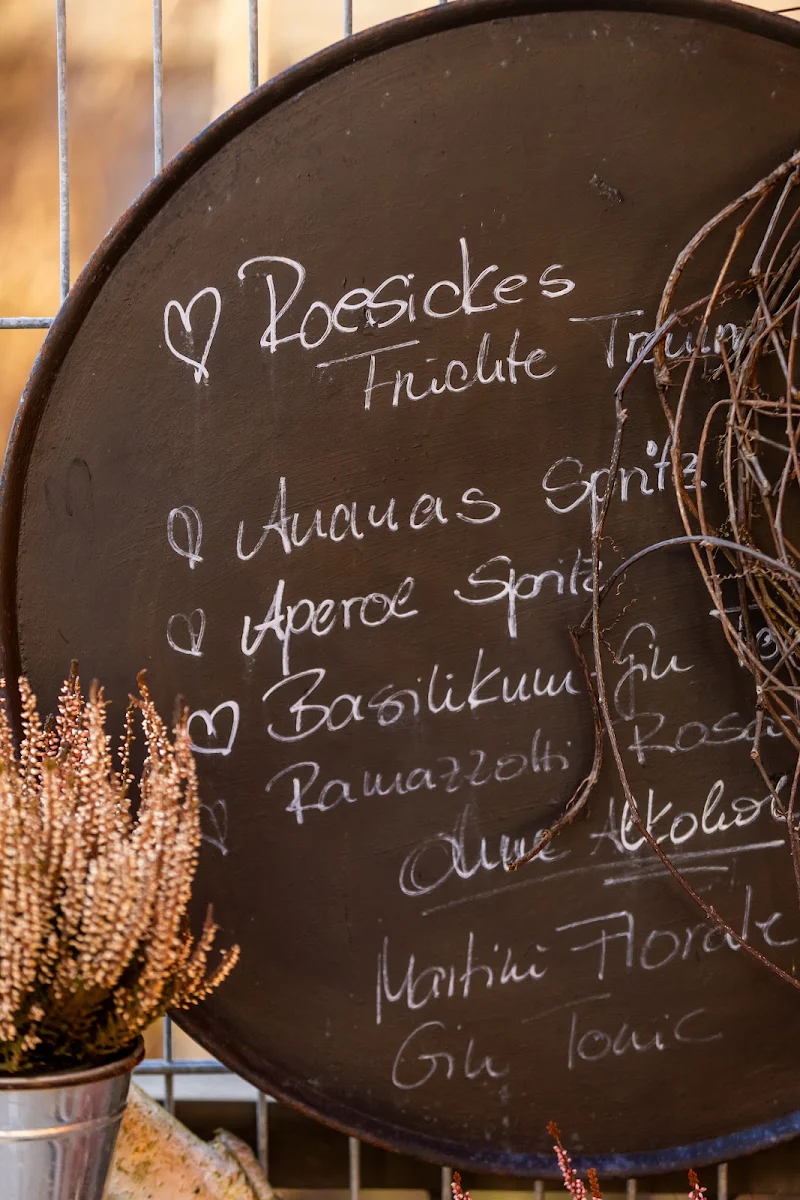 Roesickes
Früchte Traum
Ananas Spritz
Aperol Spritz
Basilikum-Gin
Ramazzotti
Ohne Alkohol
Martini Florale
Gin Tonic